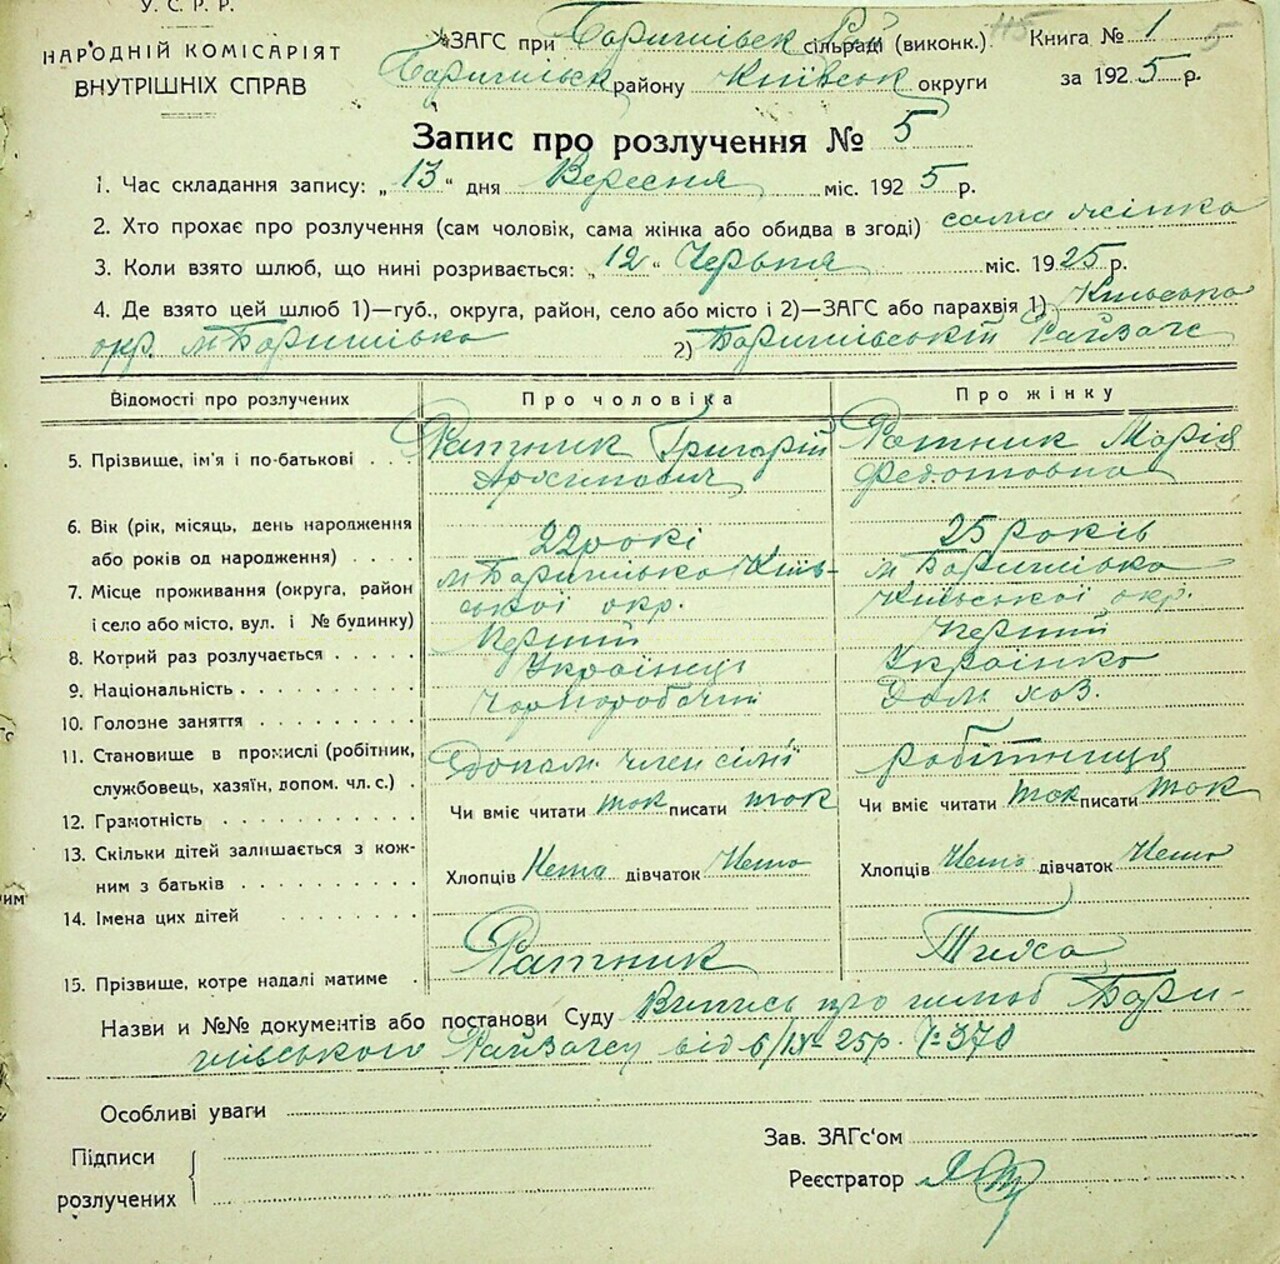 У. С. Р. Р.
НАРОДНІЙ КОМІСАРІЯТ
ВНУТРІШНІХ СПРАВ
ЗАГС при Баришівськ сільраді (виконк.) Книга № 1 5
Баришівськ району Київськ округи за 1925 р.
Запис про розлучення № 5
1. Час складання запису: „13“ дня Вересня міс. 1925 р.
2. Хто прохає про розлучення (сам чоловік, сама жінка або обидва в згоді) сама жінка
3. Коли взято шлюб, що нині розривається: „12“ Червня міс. 1925 р.
4. Де взято цей шлюб 1)—губ., округа, район, село або місто і 2)—ЗАГС або парахвія 1) Київська
окр. м Баришівка 2) Баришівській Райзагс
Відомості про розлучених Про чоловіка Про жінку
5. Прізвище, ім'я і по-батькові . . . Ратник Григорій Ратник Марія
Архипович Федотовна
6. Вік (рік, місяць, день народження
або років од народження) . . . . 22 рокі 25 років
7. Місце проживання (округа, район м Баришівка Київ- м Баришівка
і село або місто, вул. і № будинку) ської окр. Київської окр.
8. Котрий раз розлучається . . . . . Перший Перший
9. Національність . . . . . . . . . . Українць Українка
10. Головне заняття . . . . . . . . . Чорноробочий Дом. хоз.
11. Становище в промислі (робітник,
службовець, хазяїн, допом. чл. с.) . допом. член сімї робітниця
12. Грамотність . . . . . . . . . . . Чи вміє читати так писати так Чи вміє читати так писати так
13. Скільки дітей залишається з кож-
ним з батьків . . . . . . . . . . Хлопців Нема дівчаток Нема Хлопців Нема дівчаток Нема
14. Імена цих дітей . . . . . . . .
15. Прізвище, котре надалі матиме . Ратник
Назви и №№ документів або постанови Суду Випись про шлюб Бари-
шівського Райзагсу від 6/IX-25р. № 370
Особливі уваги
Підписи
розлучених
Зав. ЗАГс‘ом
Реєстратор